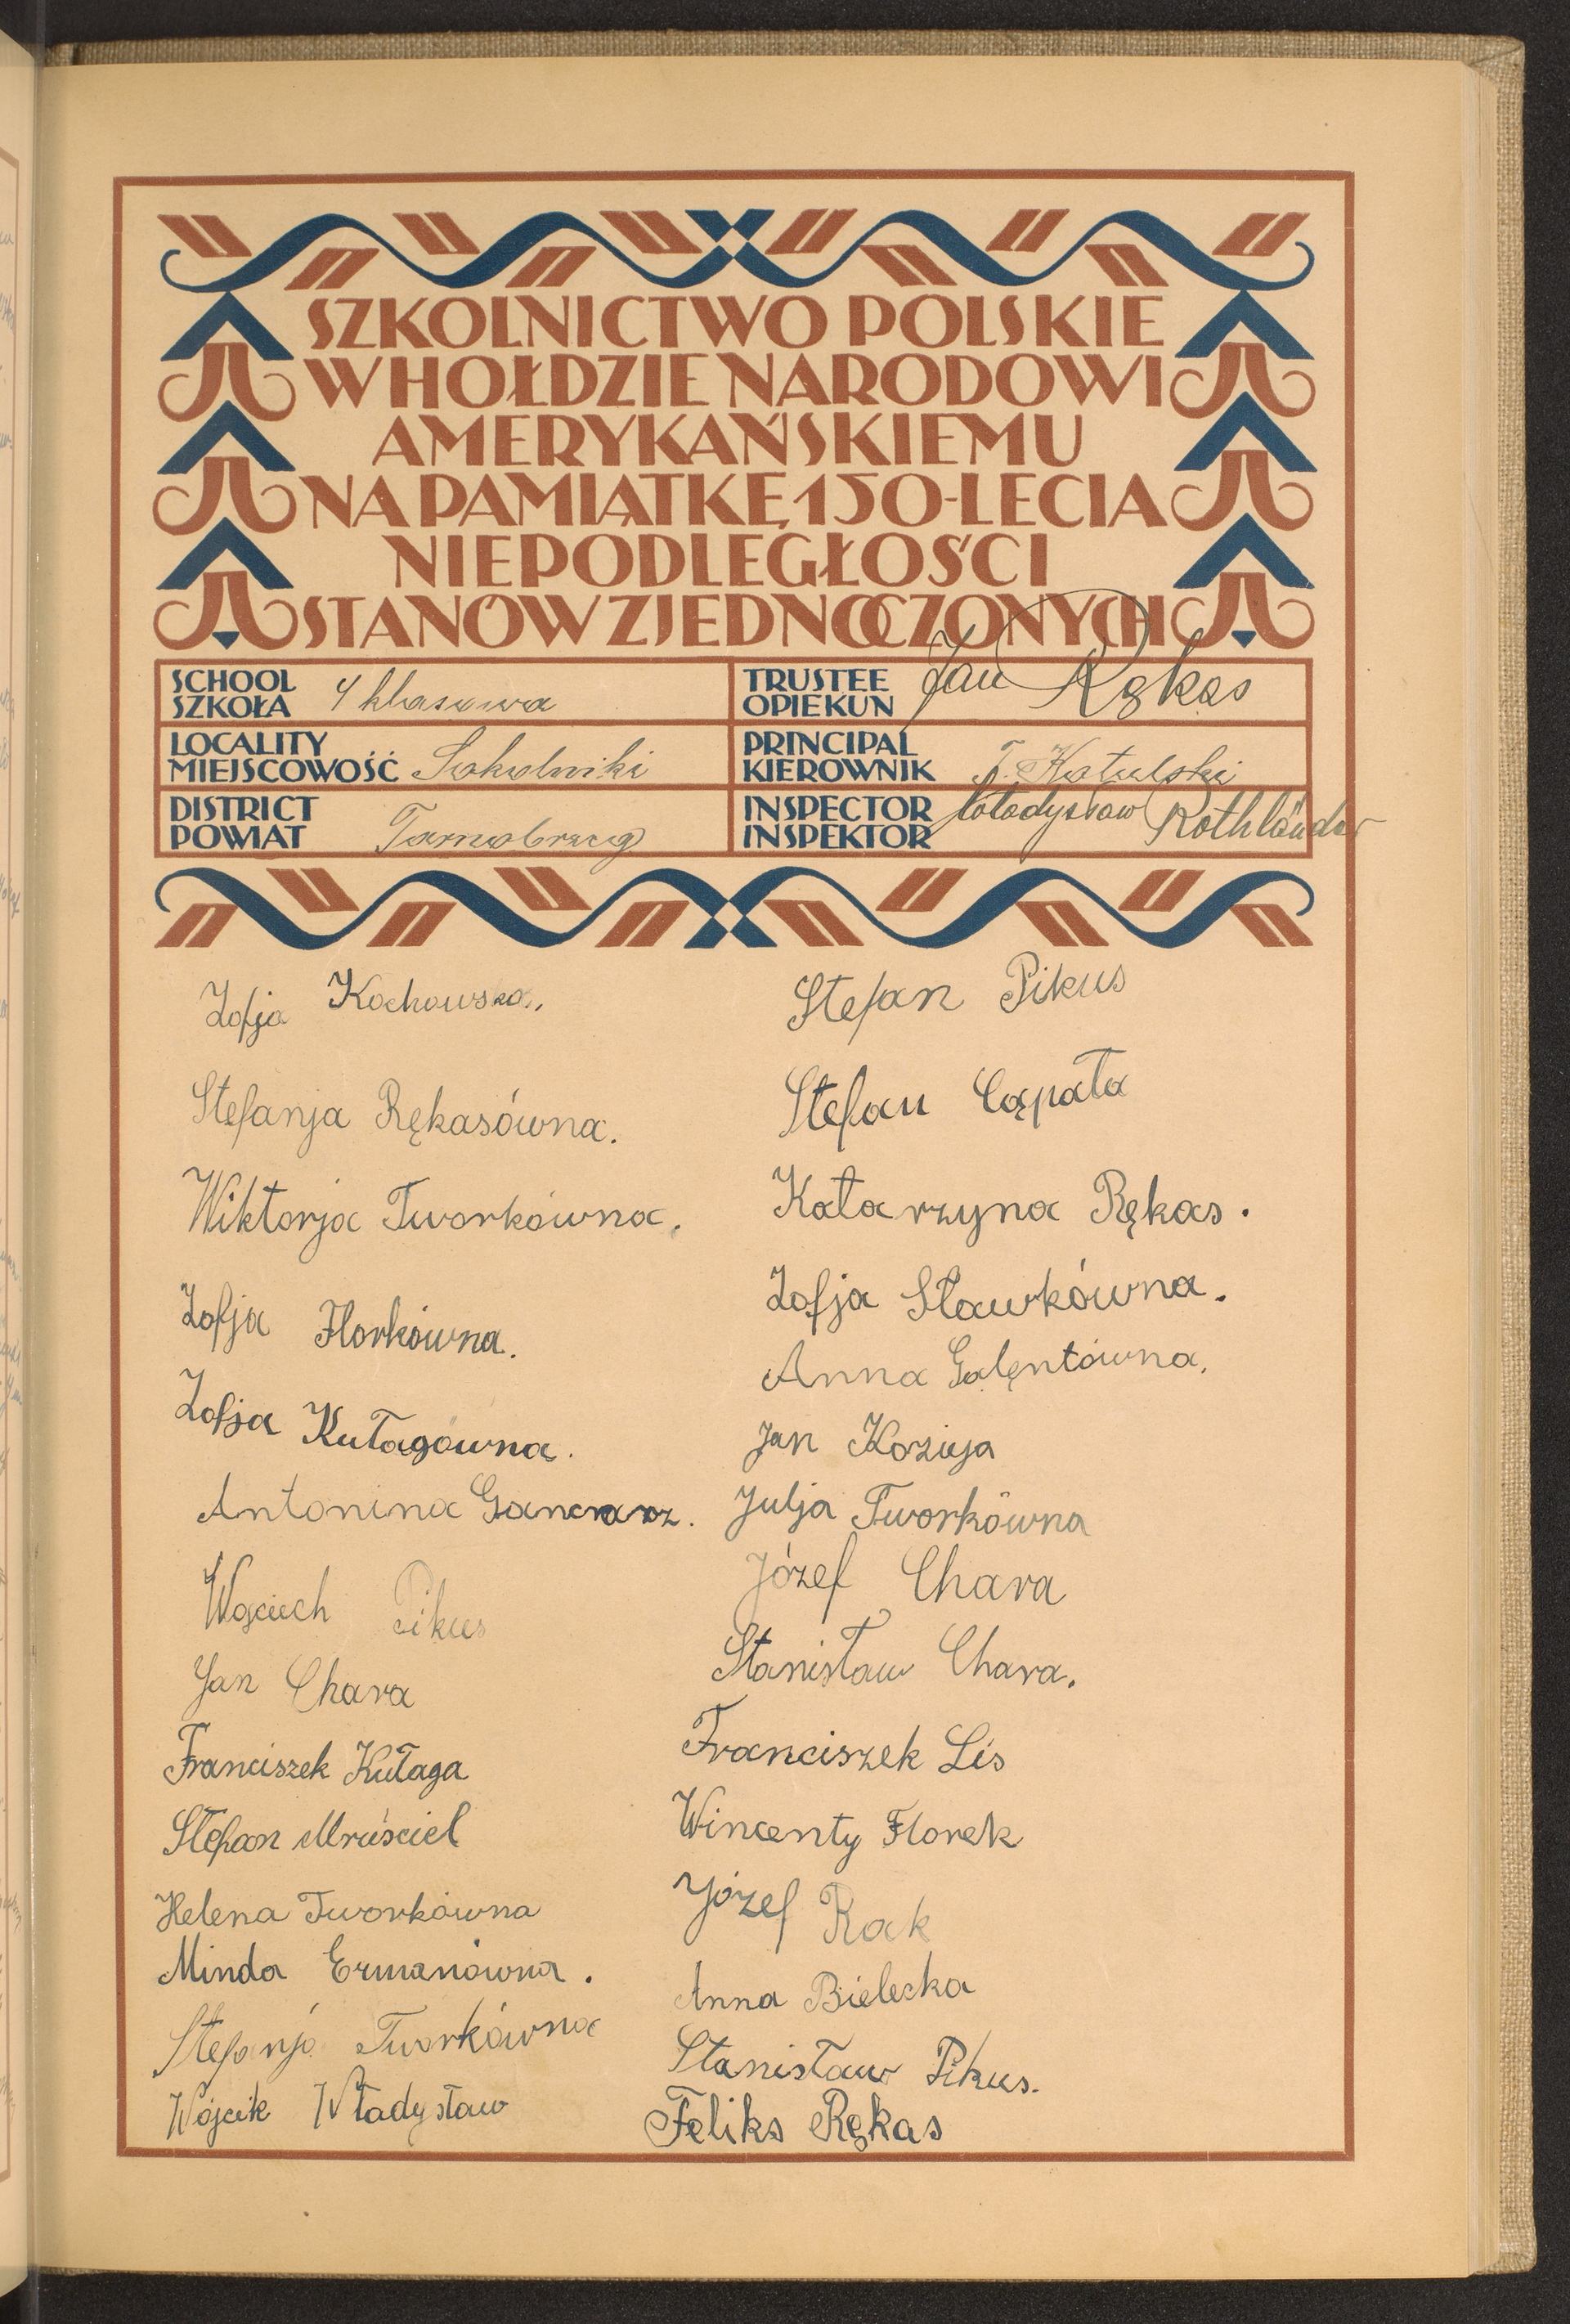 SZKOLNICTWO POLSKIE
W HOŁDZIE NARODOWI
AMERYKAŃSKIEMU
NA PAMIĄTKĘ 150-LECIA
NIEPODLEGŁOŚCI
STANÓW ZJEDNOCZONYCH
SCHOOL
SZKOŁA 4 klasowa
LOCALITY
MIEJSCOWOŚĆ Sokolniki
DISTRICT
POWIAT Tarnobrzeg
TRUSTEE
OPIEKUN Jan Rękas
PRINCIPAL
KIEROWNIK T. Kotulski
INSPECTOR
INSPEKTOR Władysław Rothländer
Zofja Kochowska,
Stefanja Rękasówna.
Wiktorja Tworkówna.
Zofja Florkówna.
Zofja Kułagówna.
Antonina Gancarz.
Wojciech Pikus
Jan Chara
Franciszek Kułaga
Stefan Mruściel
Helena Tworkówna
Minda Ermanówna.
Stefanja Tworkówna
Wójcik Władysław
Stefan Pikus
Stefan Cąpała
Katarzyna Rękas.
Zofja Sławkówna.
Anna Galęntówna.
Jan Kozieja
Julja Tworkówna
Józef Chara
Stanisław Chara.
Franciszek Lis
Wincenty Florek
Józef Rak
Anna Bielecka
Stanisław Pikus.
Feliks Rękas